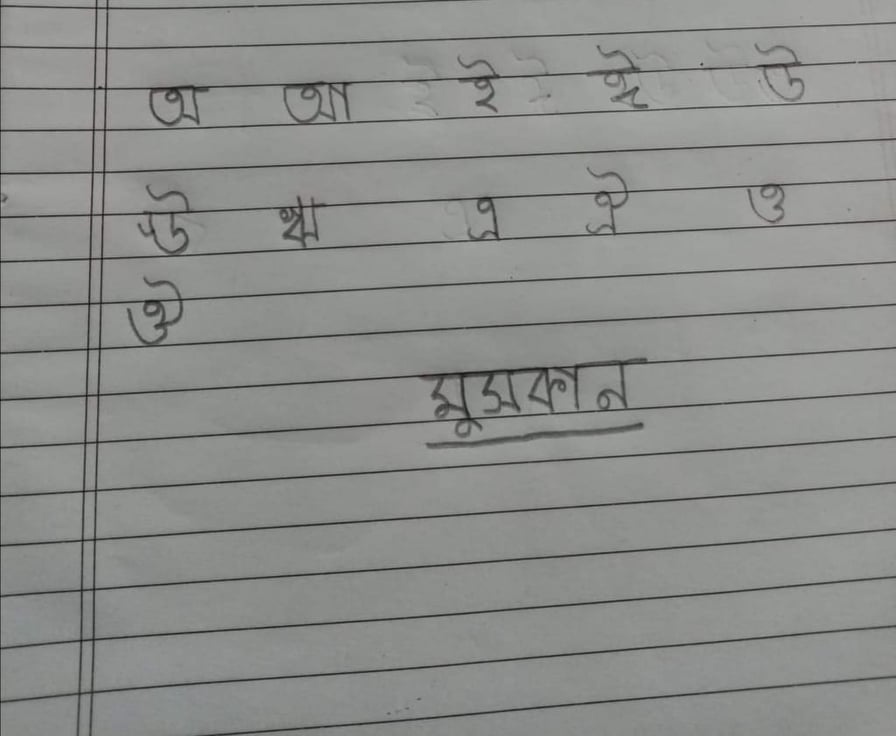 অ আ ই ঈ উ
ঊ ঋ এ ঐ ও
ঔ
মুসকান